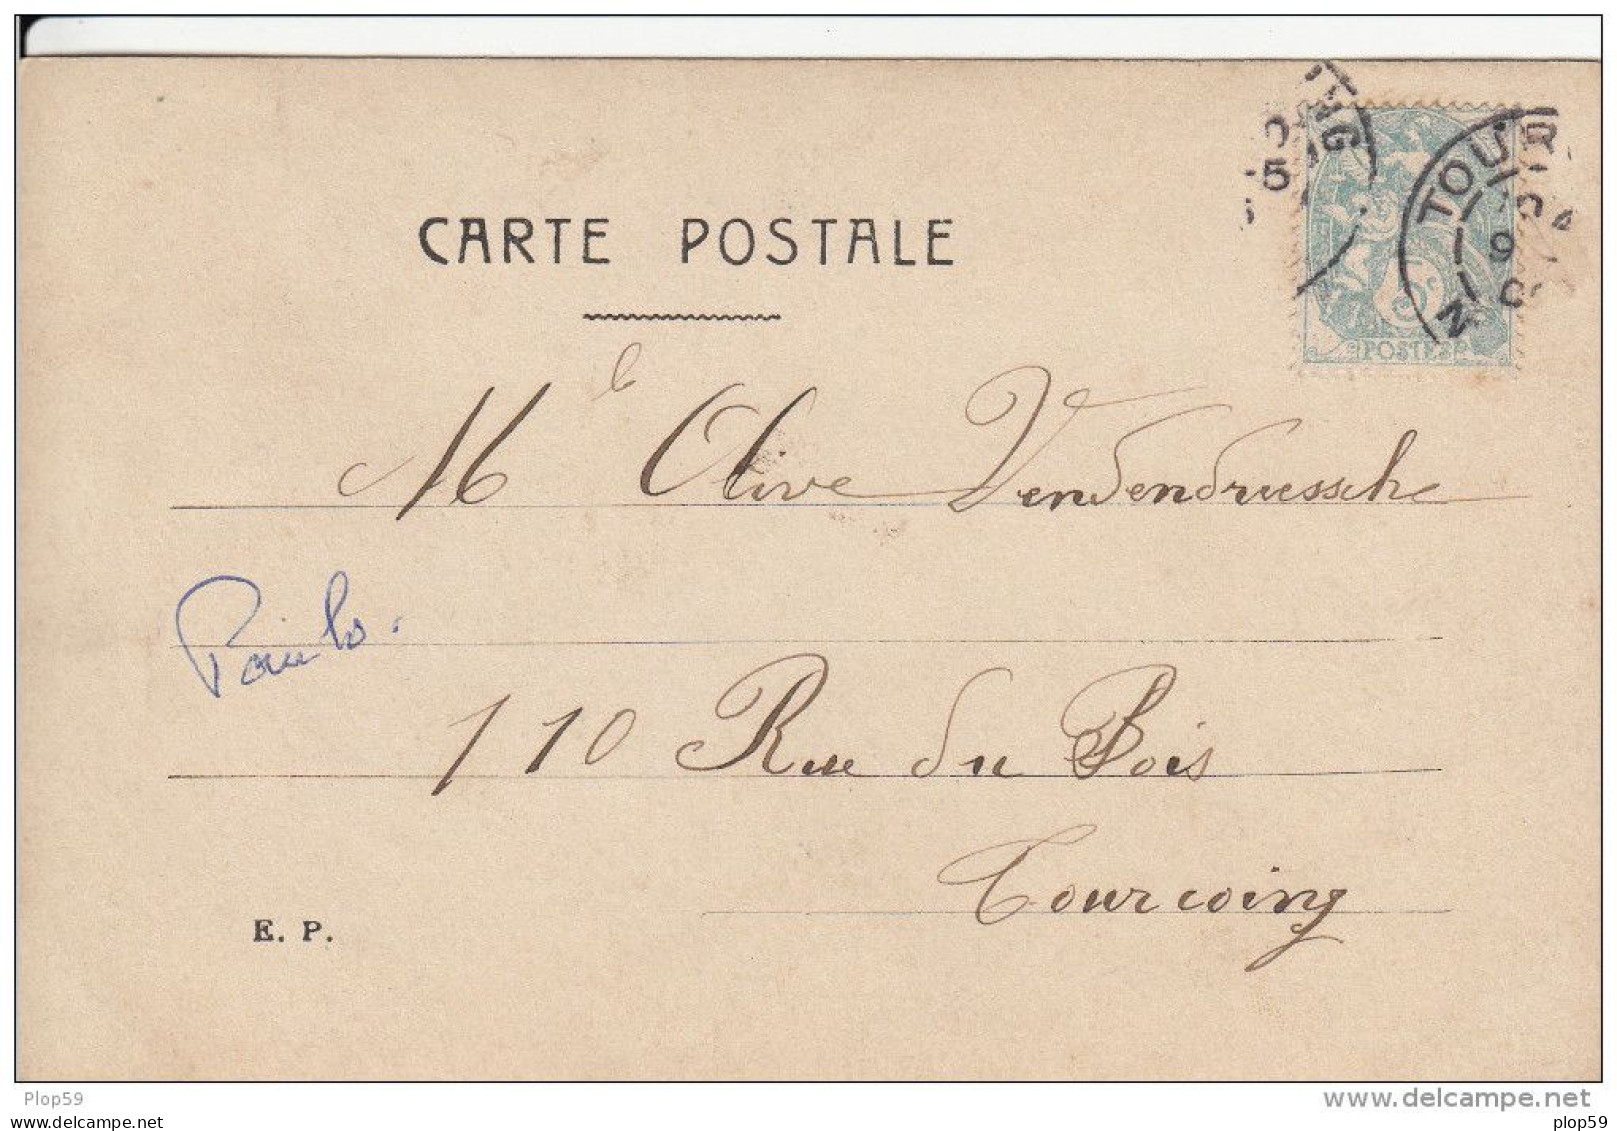 CARTE POSTALE
TOUR
5
POSTES
Mle Olive Vendendruessche
110 Rue du Bois
Tourcoing
E. P.
Plop59
www.delcampe.net
plop59